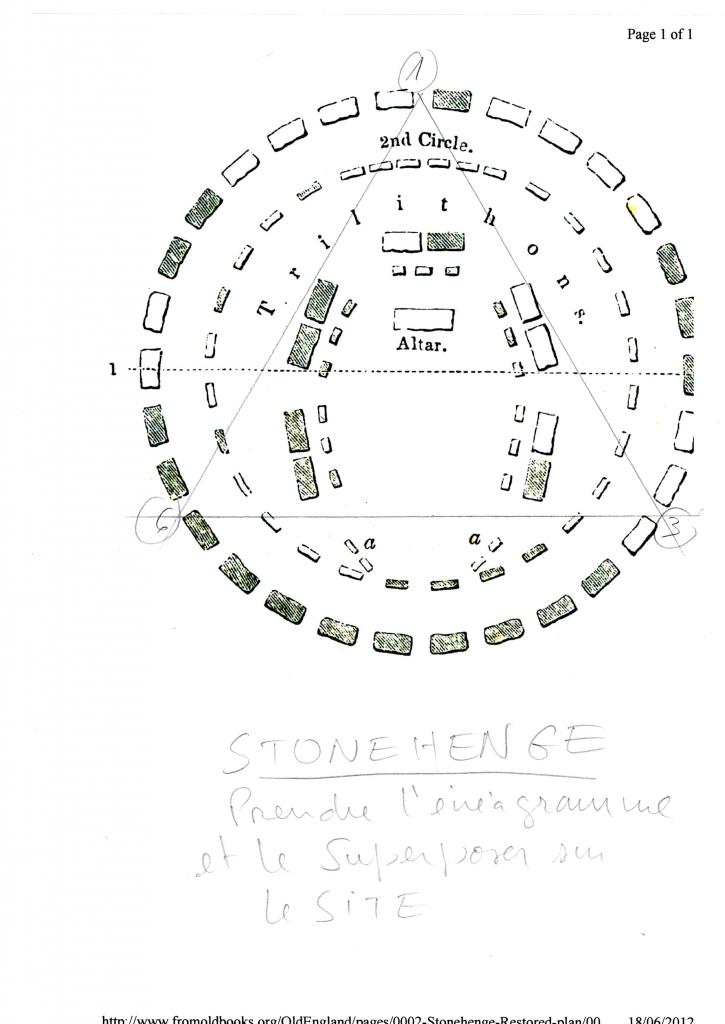 Page 1 of 1
1
2nd Circle.
Trilithons.
Altar.
1
6
3
a
a
STONEHENGE
Prendre l'énéagramme
et le Superposer sur
le SiTE
http://www.fromoldbooks.org/OldEngland/pages/0002-Stonehenge-Restored-plan/00... 18/06/2012